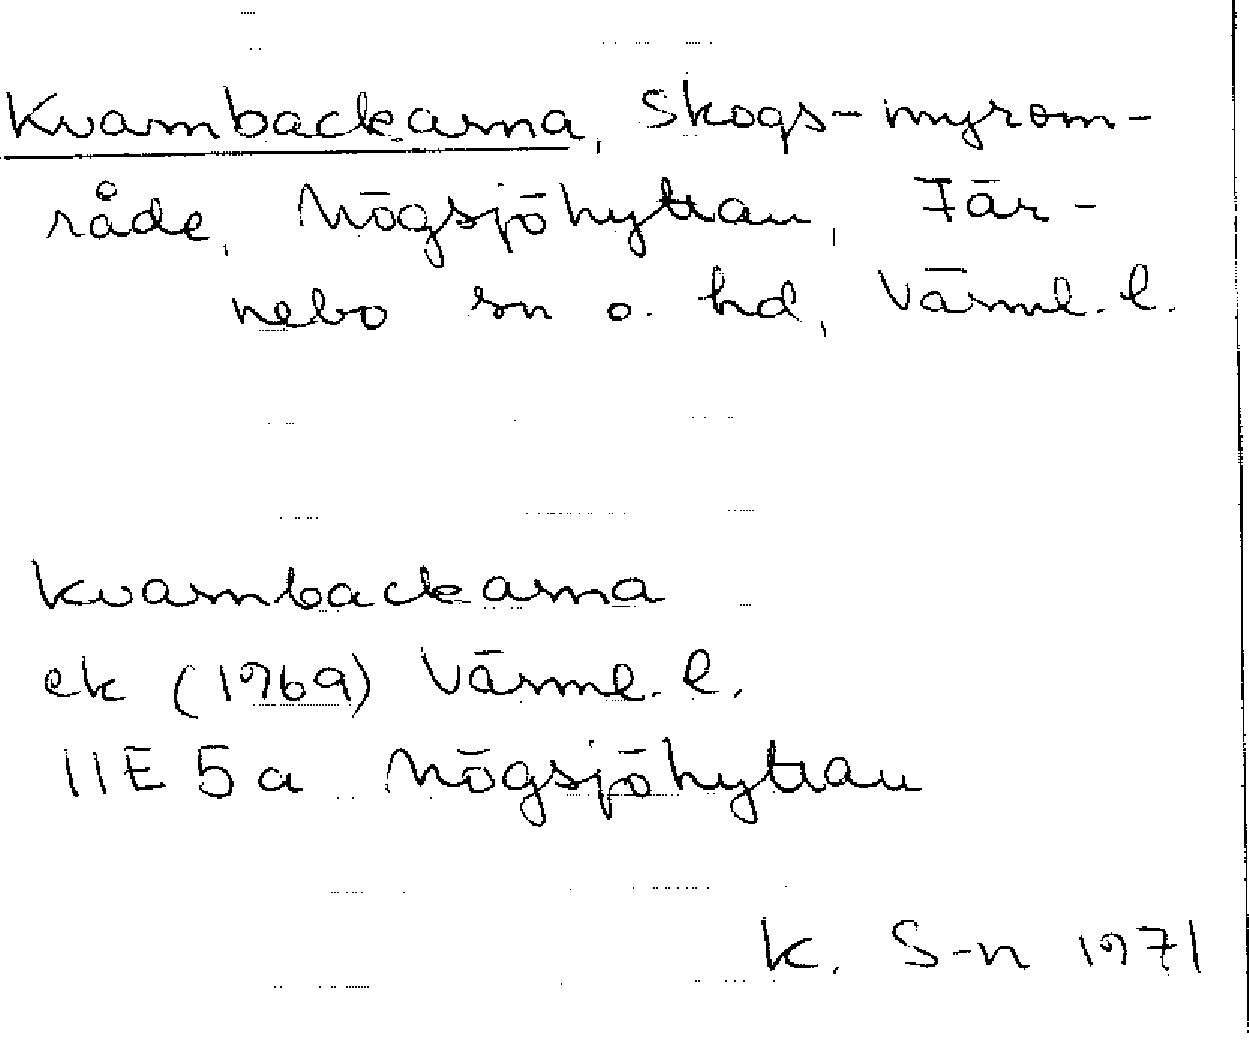 Kvarnbackarna, Skogs-myrom-
råde, Nögsjöhyttan, Fär-
nebo sn o. hd, Värml. l.
Kvarnbackarna
ek (1969) Värml. l.
11E 5a Nögsjöhyttan
K. S-n 1971